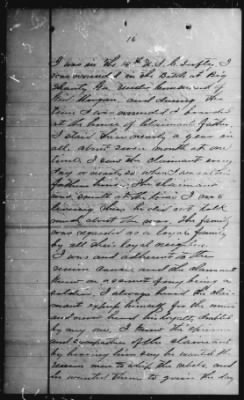 16
I was in the 10th U.S. C. Infty. I
was wounded in the Battle at Big
Shanty Ga under command of
Genl Morgan, and during the
time I was wounded I boarded
at the house of Claimants father
I staid there nearly a year in
all, about seven month at one
time. I saw the claimant every
day or nearly so when I was at his
fathers house. The claimant
was South at the time I was
there he did not talk
much about the war. The family
was regarded as a loyal family
by all their loyal neighbors.
I was an adherent to the
Union cause and the claimant
knew on account of my being a
soldier. I always heard the claimant
express himself for the union
and never heard his loyalty doubted
by any one. I knew the opinion
and sympathies of the claimant
by hearing him say he wanted the
union men to whip the rebels, and
he wanted them to gain the day